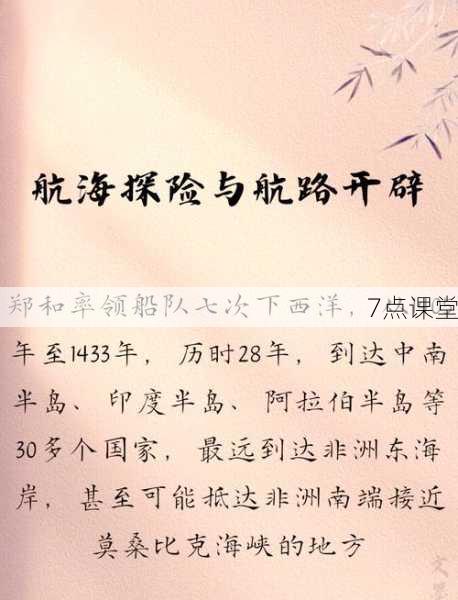 航海探险与航路开辟
郑和率领船队七次下西洋,
7点课堂
年至1433年, 历时28年, 到达中南
半岛、印度半岛、阿拉伯半岛等
30多个国家, 最远到达非洲东海
岸, 甚至可能抵达非洲南端接近
莫桑比克海峡的地方